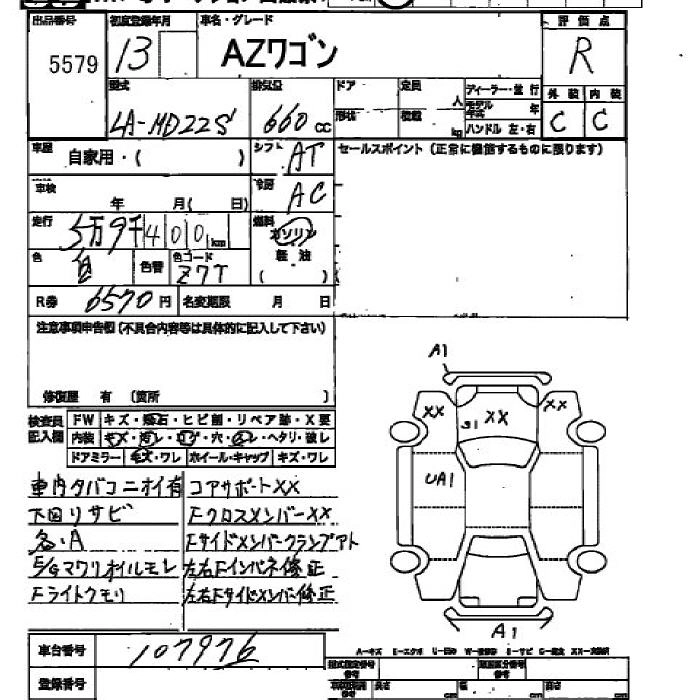 出品番号 初度登録年月 車名・グレード 評価点
5579 13 AZワゴン R
型式 排気量 ドア 定員 ディーラー・並行 外装 内装
人 モデル年式 年
LA-MD22S 660cc 形状 積載 kg ハンドル 左・右 C C
車歴 自家用・( ) シフト AT セールスポイント(正常に機能するものに限ります)
車検 年 月( 日) 冷房 AC
走行 5万9千400km 燃料 ガソリン
軽油
色 色替 色コード Z7T ( )
R券 6570円 名変期限 月 日
注意事項申告欄(不具合内容等は具体的に記入して下さい)
修復歴 有 (箇所 )
検査員記入欄 FW キズ・飛石・ヒビ割・リペア跡・X要
内装 キズ・汚レ・コゲ・穴・ヌレ・ヘタリ・破レ
ドアミラー キズ・ワレ ホイール・キャップ キズ・ワレ
車内タバコニオイ有 コアサポートXX
下回リサビ FクロスメンバーXX
各・A Fサイドメンバークランプアト
E/Gマワリオイルモレ 左右Fインパネ修正
Fライトクモリ 左右Fサイドメンバー修正
A1
XX XX XX
S1
UA1
A1
車台番号 107976
登録番号
A-キズ
型式指定番号 類別区分番号
長さ cm 幅 cm 高さ cm